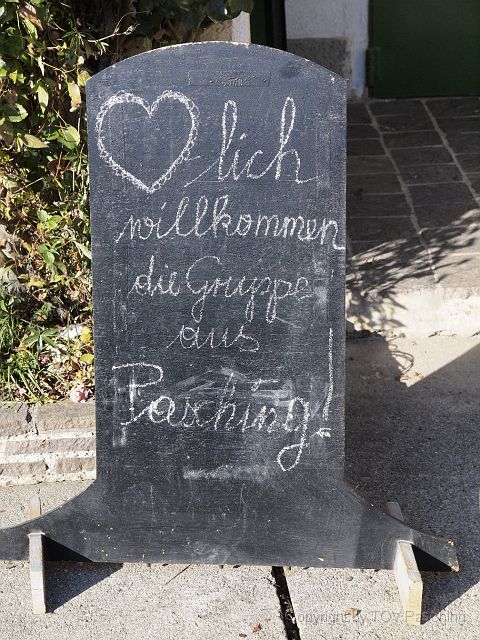 ♥lich
willkommen
die Gruppe
aus
Pasching!
Copyright by TOV Pasching